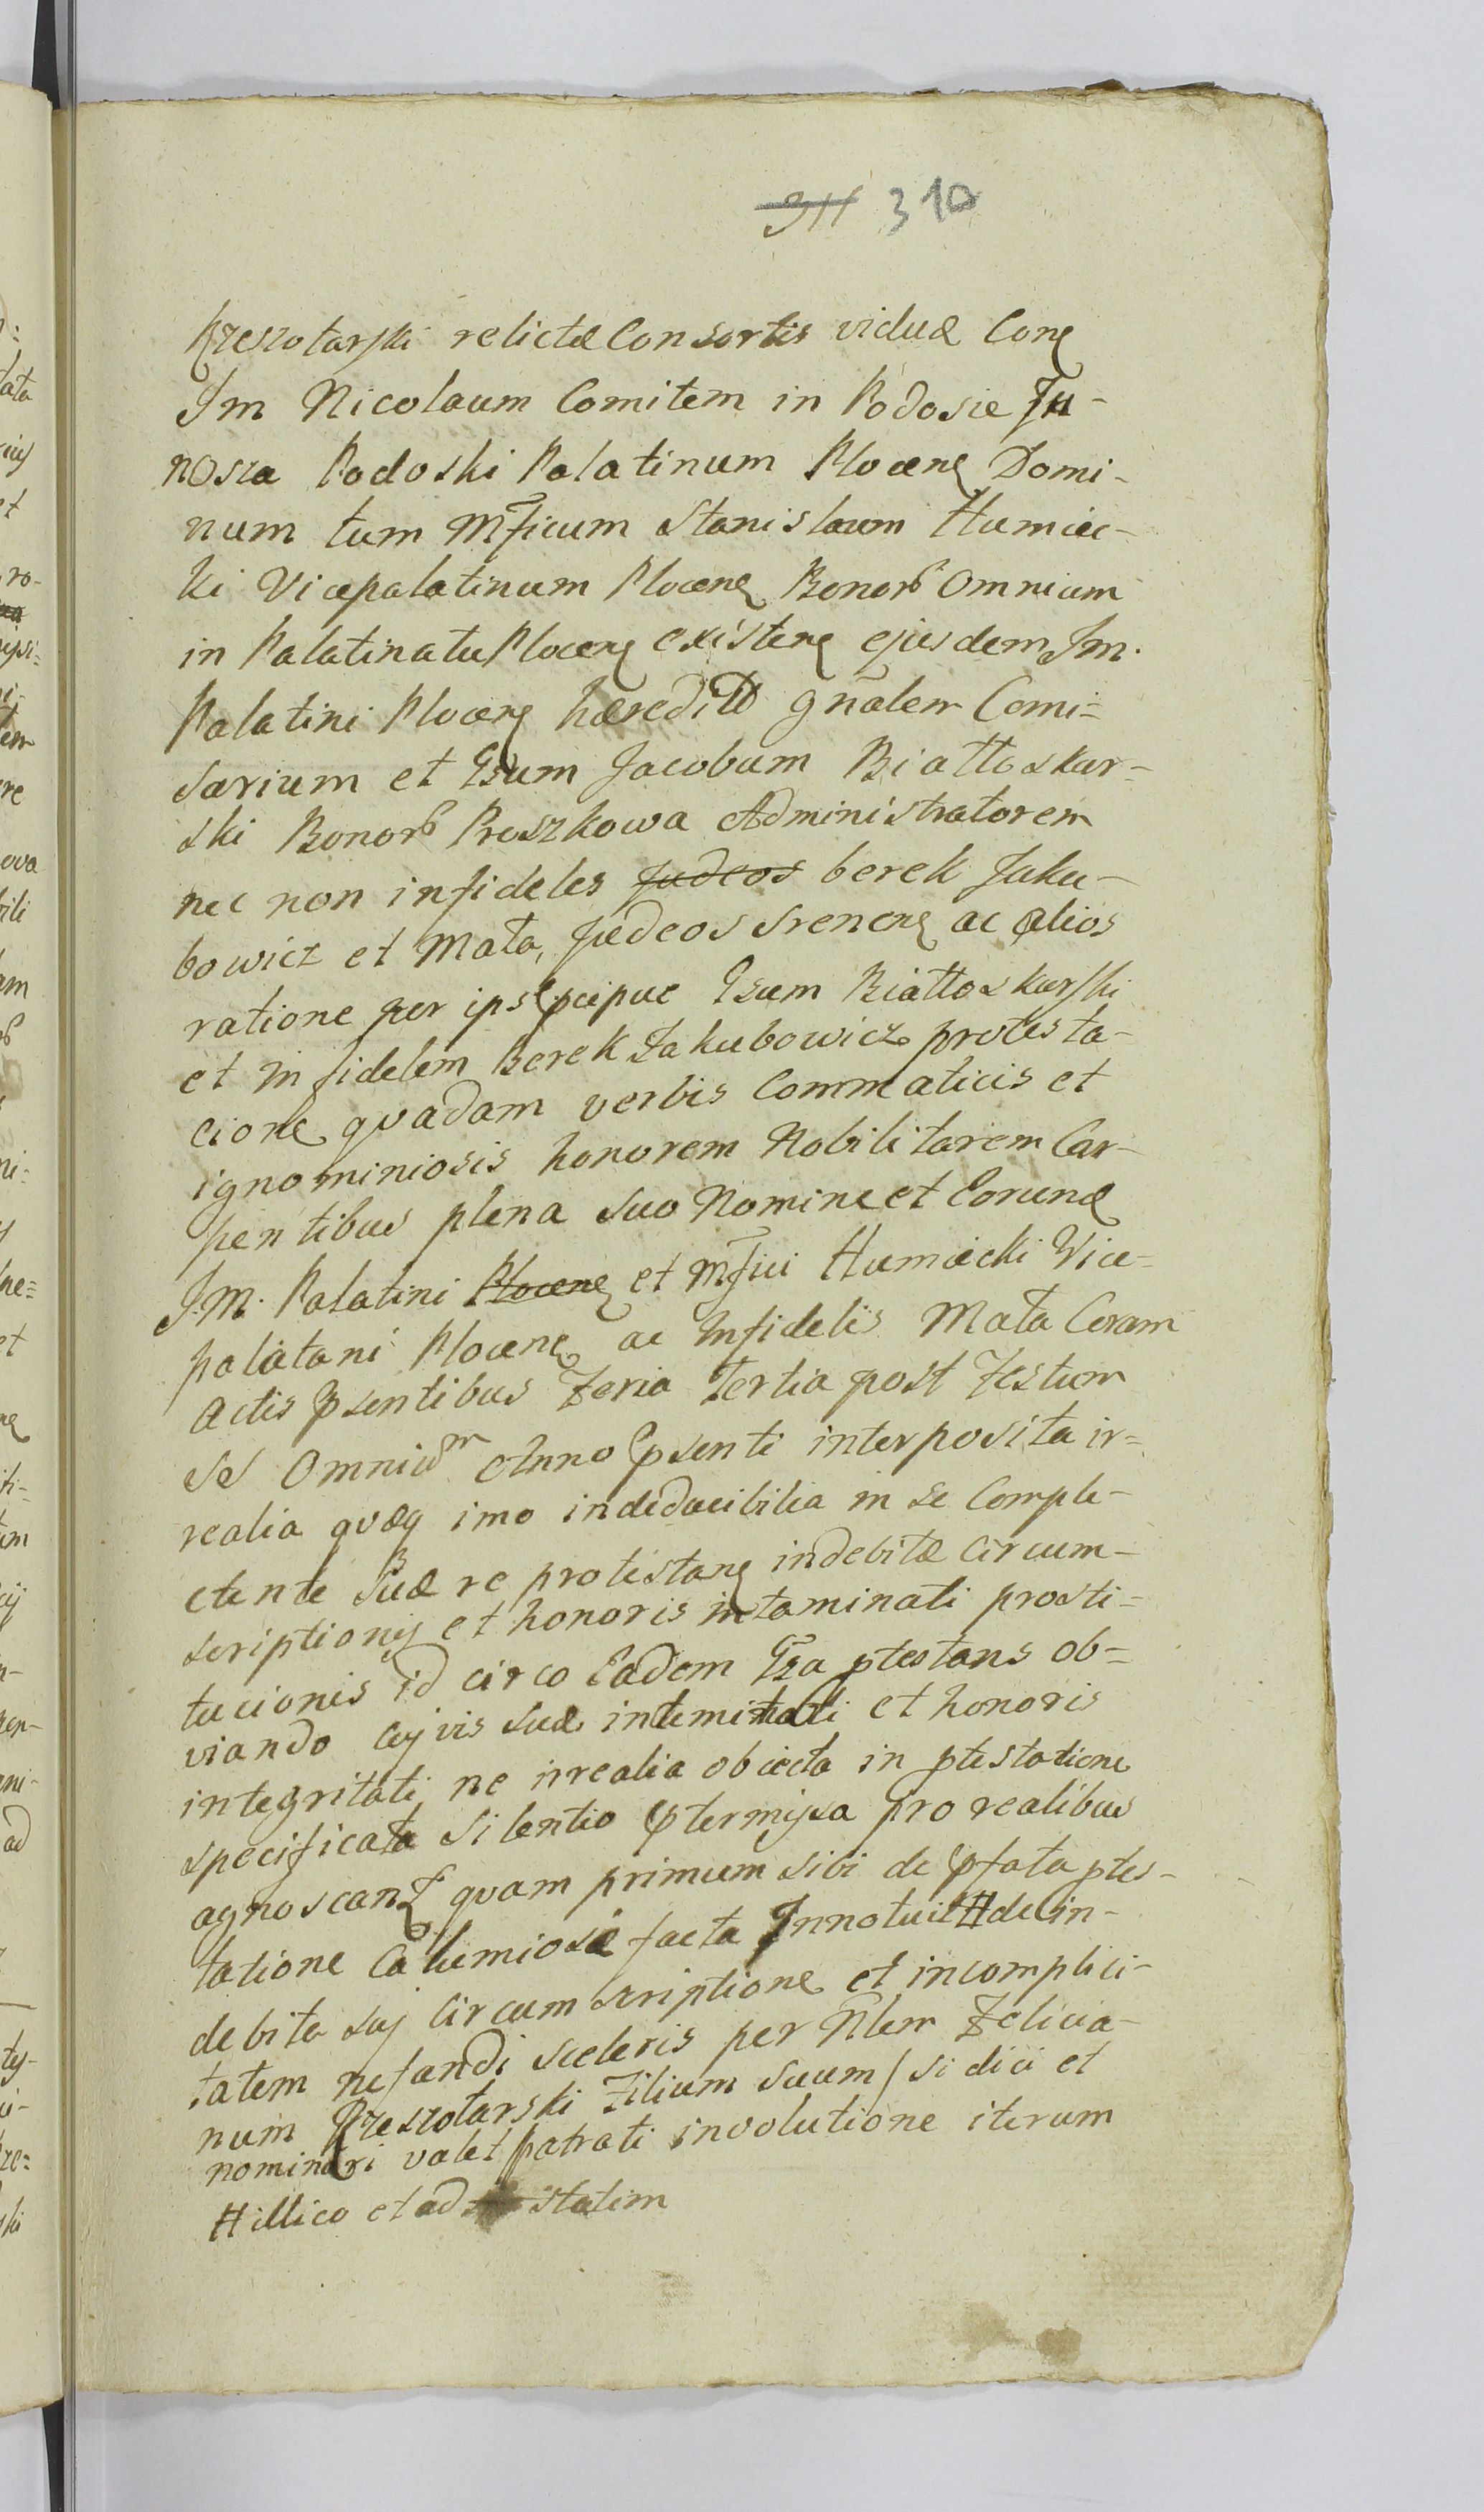 311 310
Rzeszotarski relictæ Consortis viduæ Conꝗ
Im Nicolaum Comitem in Podosie Ju-
nosza Podoski Palatinum Plocenꝗ Domi-
num tum Mf̃icum Stanislaum Humiec-
ki Vicepalatinum Plocenꝗ Bonorb Omnium
in Palatinatu Plocenꝗ existenꝗ ejusdem Im.
Palatini Plocenꝗ hæredit gñalem Comi=
sarium et Gsum Jacobum Biattoskur=
ski Bonorb Proszkowa Administratorem
nec non infideles Judeos berek Jaku-
bowicz et Mata, Judeos Srencnꝗ ac alios
ratione per ips pcipue Gsum Biattoskurski
et infidelem Berek Jakubowicz protesta-
cione quadam verbis Commaticis et
ignominiosis honorem Nobilitarem Car-
pentibus plena suo Nomine et Eorund
J.M. Palatini Plocenꝗ et Mf̃ici Humiecki Vice-
palatani Plocenꝗ ac Infidelis Mata Coram
Actis Psentibus Feria Tertia post Festum
SS Omniuͫ Anno Psenti interposita ir=
realia quæq imo indeducibilia in se Comple-
ctente suæ re protestanꝗ indebitæ Circum-
scriptionis et honoris intaminati prosti=
tucionis id circo Eadem Gsa ptestans ob=
viando cujvis suæ intemitati et honoris
integritati, ne irrealia obiecta in ptestatione
specificata Silentio Ptermissa pro realibus
agnoscantr quam primum sibi de Pfata ptes-
tatione Calumiosæ facta Innotuit # de in-
debita sui Circumscriptione et incomplici-
tatem nefandi sceleris per Nlem Felicia-
num Rzeszotarski Filium suum / si dici et
nominari valet patrati involutione iterum
# illico et ad statim